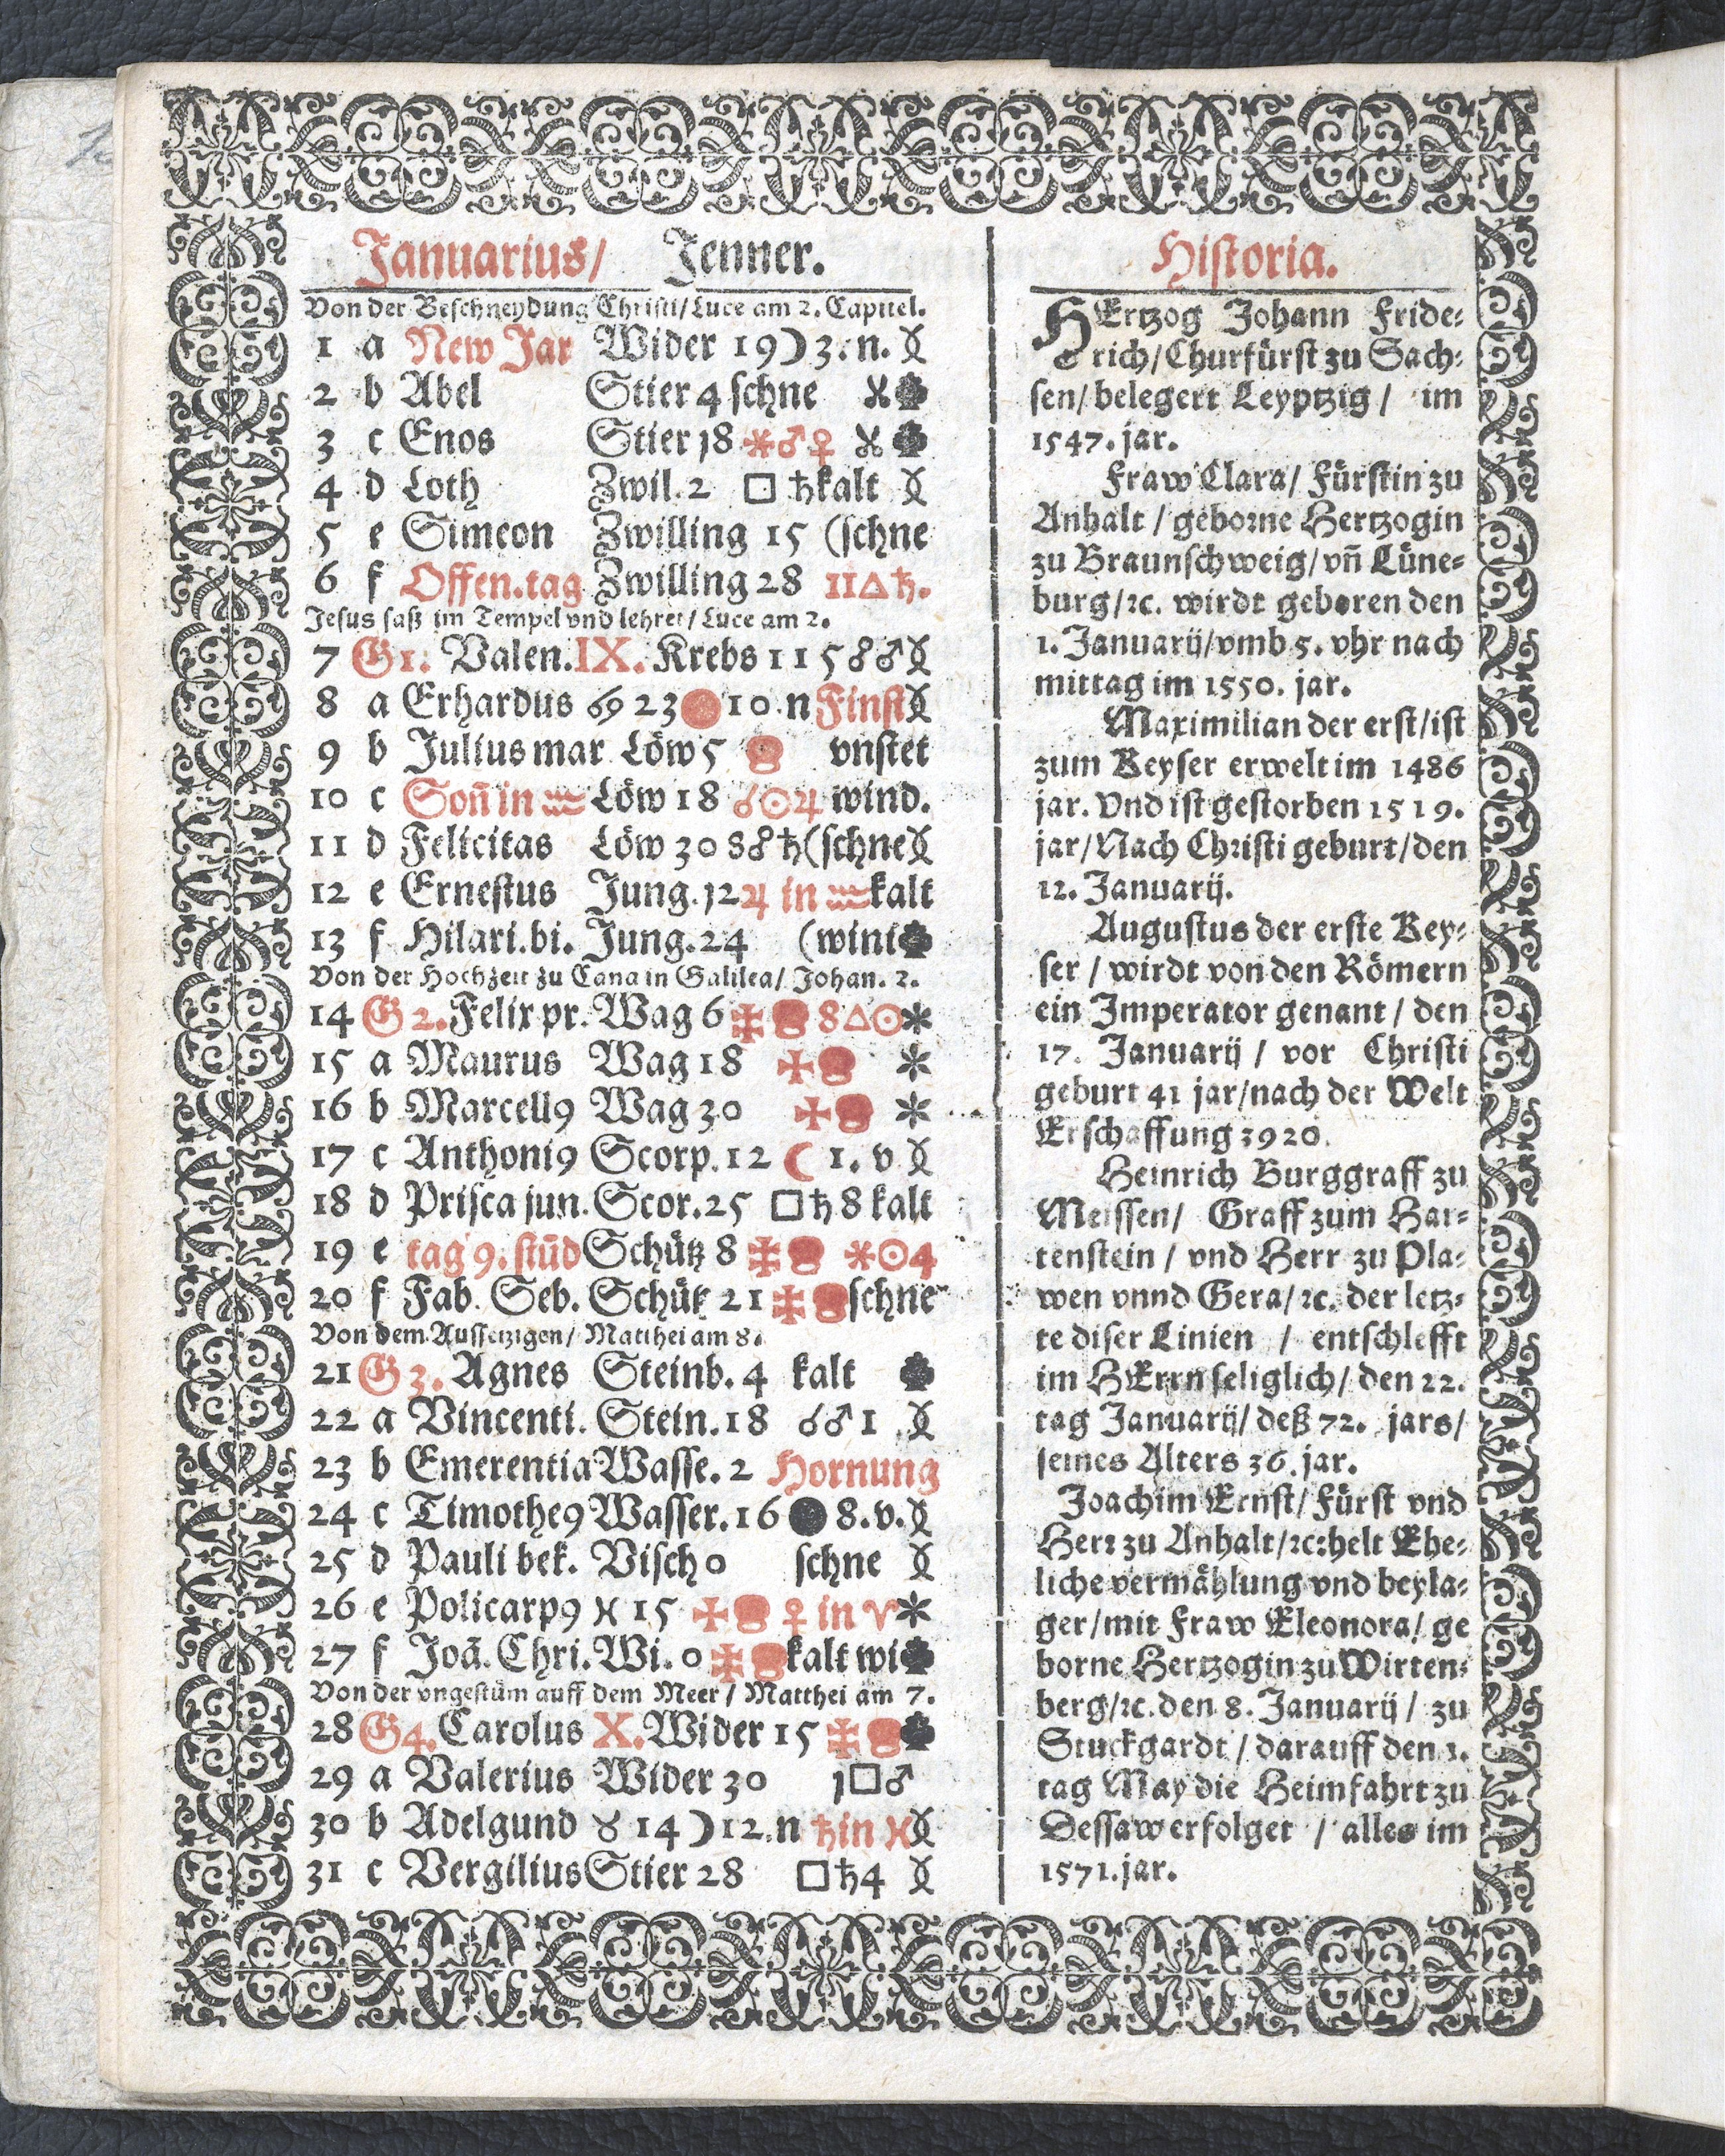 Januarius/ Jenner.
Von der Beschneydung Christi/ Luce am 2. Capitel.
1 a New Jar Wider 19 ☽ 3. n.
2 b Abel Stier 4 schne
3 c Enos Stier 18 ⚹ ♂ ♀
4 d Loth Zwil. 2 □ ♄ kalt
5 e Simeon Zwilling 15 (schne
6 f Offen.tag Zwilling 28 11 △ ♄.
Jesus saß im Tempel vnd lehret/ Luce am 2.
7 G 1. Valen. IX. Krebs 11 5 ☍ ♂
8 a Erhardus ♋ 23 10. n Finst
9 b Julius mar Löw 5 vnstet
10 c Soñ in ♒ Löw 18 ☌ ☉ ♃ wind.
11 d Felicitas Löw 30 8 ☍ ♄ (schne
12 e Ernestus Jung. 12 ♃ in ♒ kalt
13 f Hilari. bi. Jung. 24 (wint
Von der Hochzeit zu Cana in Galilea/ Johan. 2.
14 G 2. Felix pr. Wag 6 8 △ ☉ *
15 a Maurus Wag 18 *
16 b Marcell9 Wag 30 *
17 c Anthoni9 Scorp. 12 ☾ 1. v
18 d Prisca jun. Scor. 25 □ ♄ 8 kalt
19 e tag 9. stūd Schütz 8 ⚹ ☉ 4
20 f Fab. Seb. Schütz 21 schne
Von dem Aussetzigen/ Matthei am 8.
21 G 3. Agnes Steinb. 4 kalt
22 a Vincenti. Stein. 18 ☌ ♂ 1
23 b Emerentia Wasse. 2 Hornung
24 c Timothe9 Wasser. 16 ● 8. v.
25 d Pauli bek. Visch 0 schne
26 e Policarp9 ♓ 15 ♀ in ♈ *
27 f Joā. Chri. Wi. 0 kalt wi
Von der vngestüm auff dem Meer/ Matthei am 7.
28 G 4. Carolus X. Wider 15
29 a Valerius Wider 30 1 □ ♂
30 b Adelgund ♉ 14 ☽ 12. n ♄ in ♓
31 c Vergilius Stier 28 □ ♄ 4
Historia.
HErtzog Johann Fride=
rich/ Churfürst zu Sach=
sen/ belegert Leyptzig/ im
1547. jar.
Fraw Clara/ Fürstin zu
Anhalt/ geborne Hertzogin
zu Braunschweig/ vñ Lüne=
burg/ ꝛc. wirdt geboren den
1. Januarij/ vmb 5. vhr nach
mittag im 1550. jar.
Maximilian der erst/ ist
zum Keyser erwelt im 1486
jar. Vnd ist gestorben 1519.
jar/ Nach Christi geburt/ den
12. Januarij.
Augustus der erste Key=
ser/ wirdt von den Römern
ein Imperator genant/ den
17. Januarij/ vor Christi
geburt 41 jar/ nach der Welt
Erschaffung 3920.
Heinrich Burggraff zu
Meissen/ Graff zum Har=
tenstein/ vnd Herr zu Pla=
wen vnnd Gera/ ꝛc. der letz=
te diser Linien/ entschlefft
im HErrn seliglich/ den 22.
tag Januarij/ deß 72. jars/
seines Alters 36. jar.
Joachim Ernst/ Fürst vnd
Herr zu Anhalt/ ꝛc: helt Ehe=
liche vermählung vnd beyla=
ger/ mit Fraw Eleonora/ ge
borne Hertzogin zu Wirten=
berg/ ꝛc. den 8. Januarij/ zu
Stuckgardt/ darauff den 1.
tag May die Heimfahrt zu
Dessaw erfolget/ alles im
1571. jar.